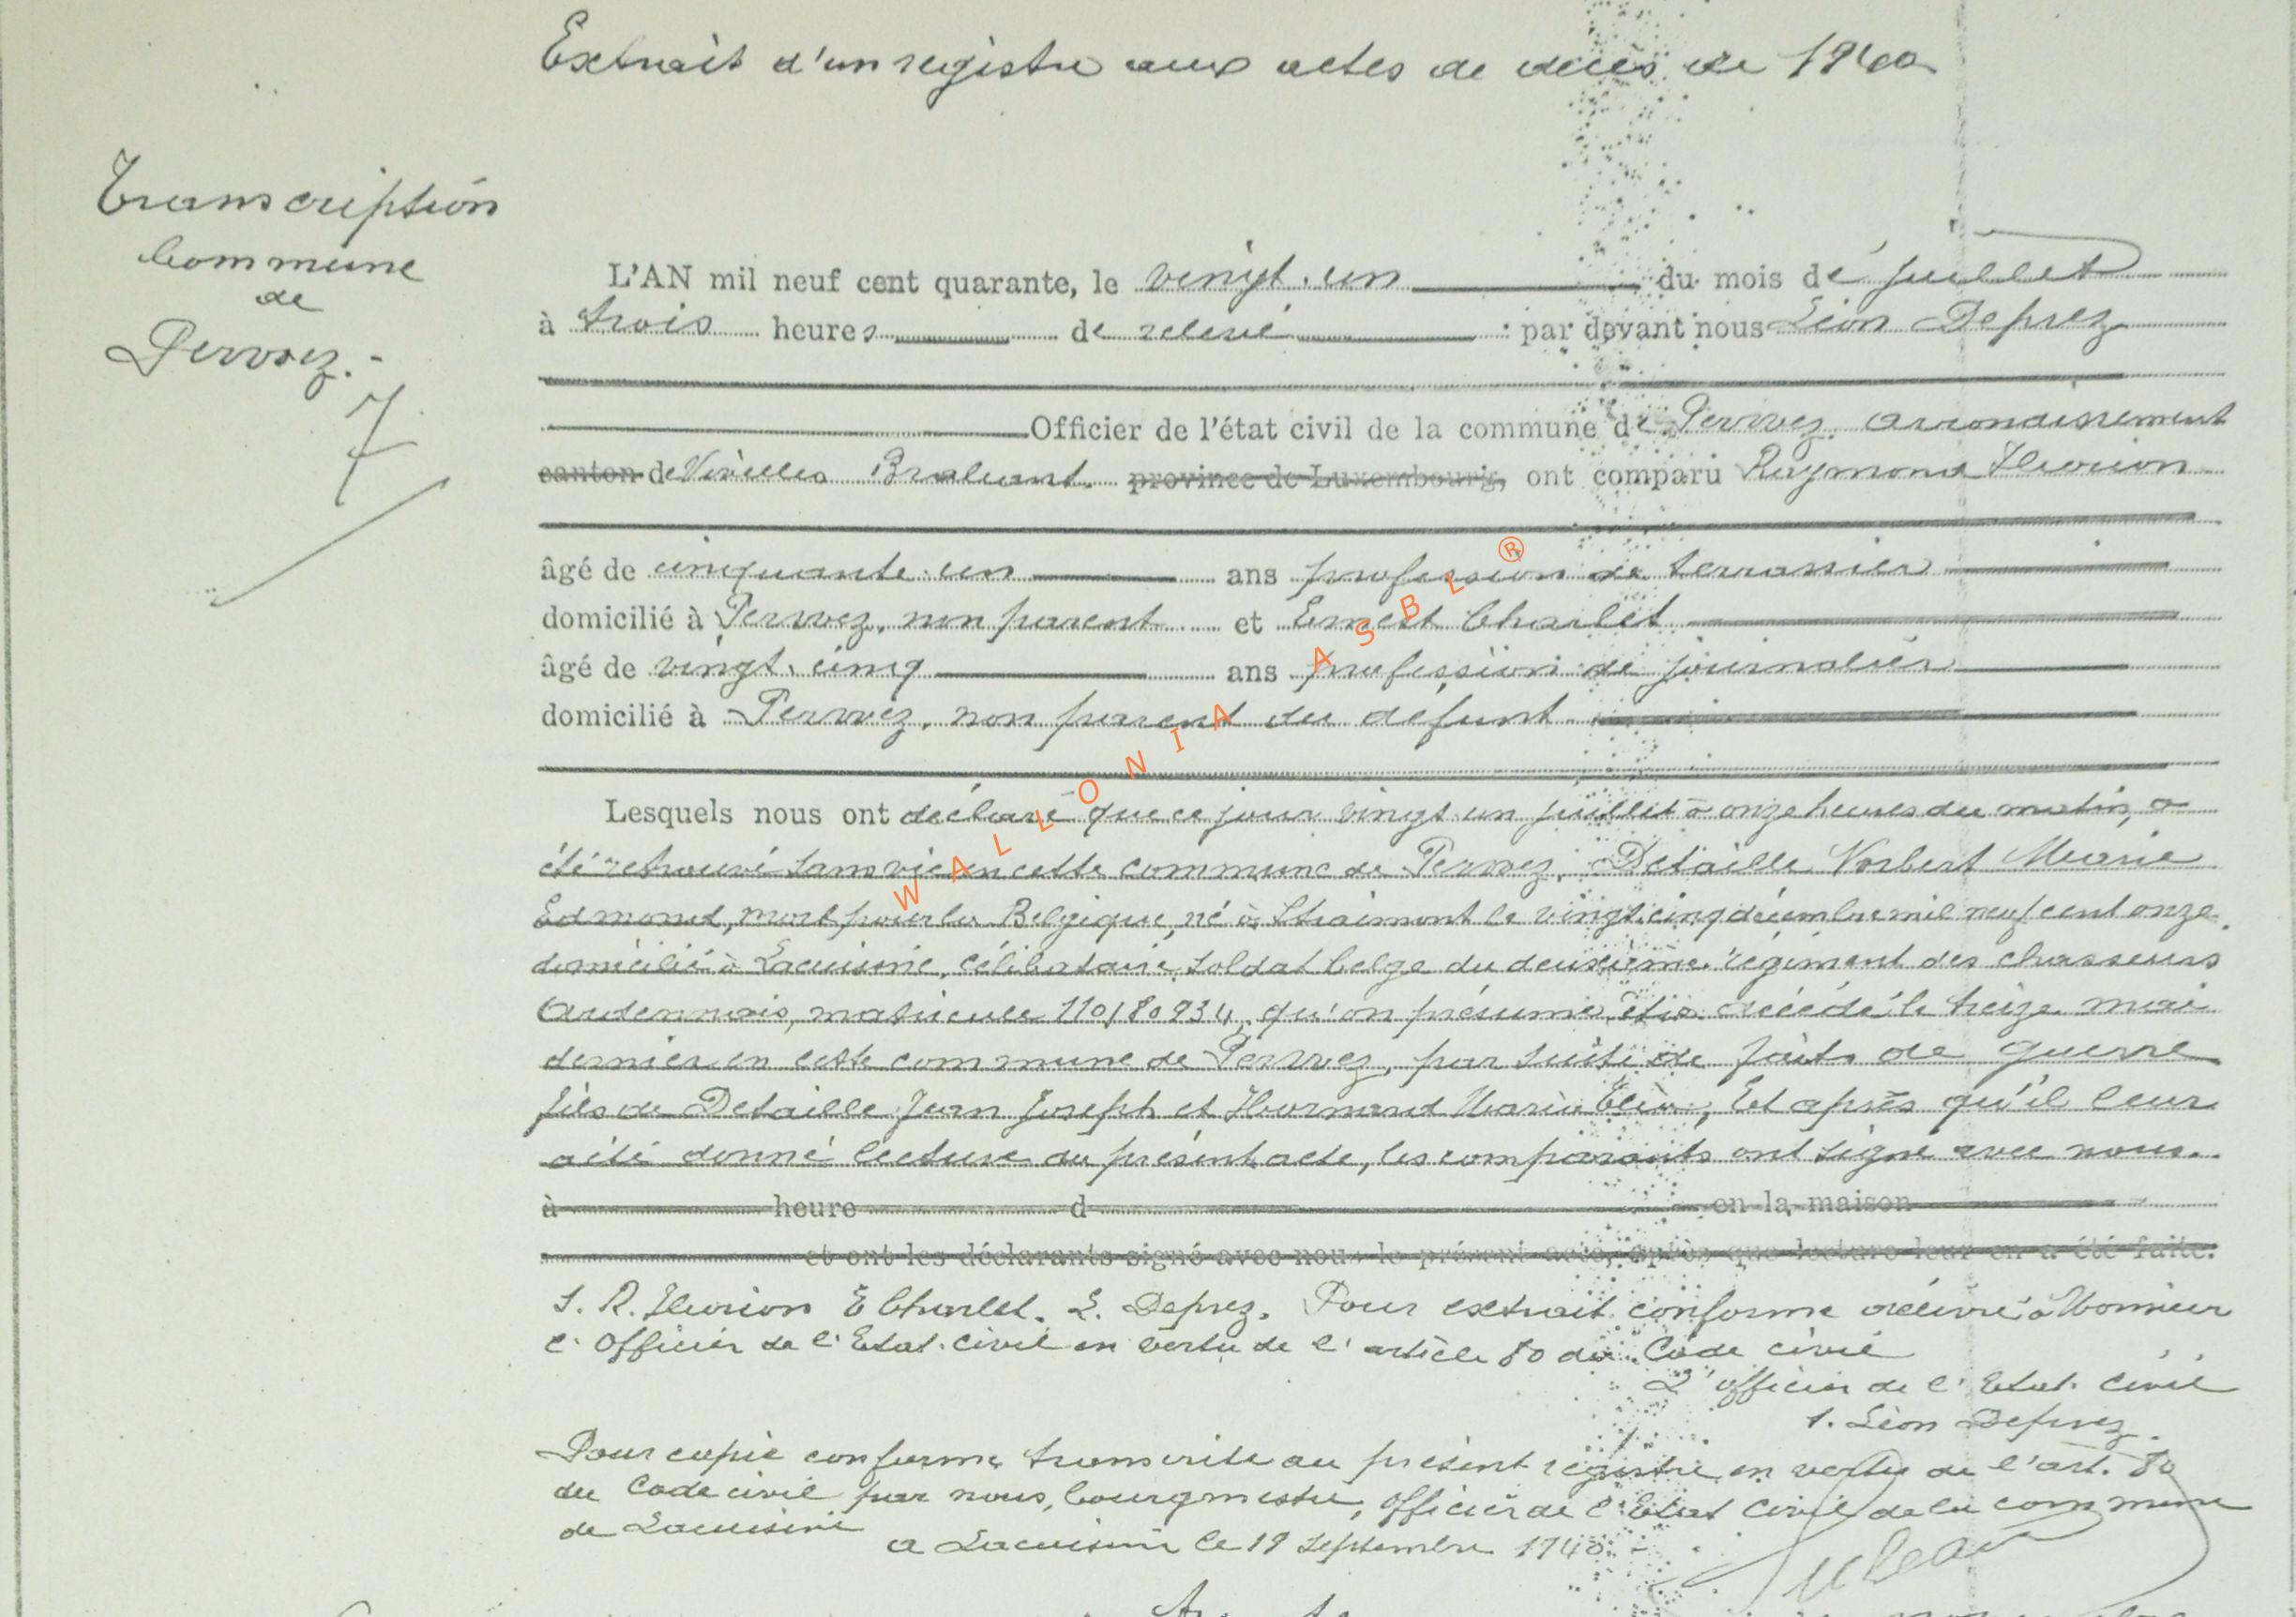 Extrait d'un registre aux actes de décès de 1940
Transcription
Commune
de
Perwez.-
7
L'AN mil neuf cent quarante, le vingt-un du mois de juillet
à trois heures de relevé : par devant nous Léon Deprez
Officier de l'état civil de la commune de Perwez, arrondissement
canton de Nivelles Brabant. province de Luxembourg, ont comparu Raymond Henrion
âgé de cinquante-un ans profession de terrassier
domicilié à Perwez, non parent et Ernest Charlet
âgé de vingt-cinq ans profession de journalier
domicilié à Perwez, non parent du défunt
Lesquels nous ont déclaré que ce jour vingt-un juillet à onze heures du matin, a
été retrouvé sans vie en cette commune de Perwez, Detaille Norbert Marie
Edmond, mort pour la Belgique, né à Straimont le vingt-cinq décembre mil neuf cent onze,
domicilié à Lacuisine, célibataire, soldat belge du deuxième régiment des chasseurs
Ardennais, matricule 110/80934, qu'on présume être décédé le treize mai
dernier en cette commune de Perwez, par suite de faits de guerre
fils de Detaille Jean Joseph et Marie. Et après qu'il leur
a été donné lecture du présent acte, les comparants ont signé avec nous.
à heure d en la maison
et ont les déclarants signé avec nous le présent acte, après que lecture leur en a été faite.
s. R. Henrion E Charlet. L. Deprez. Pour extrait conforme délivré à Monsieur
l'Officier de l'Etat-civil en vertu de l'article 80 du Code civil
L'officier de l'Etat-Civil
s. Léon Deprez.
Pour copie conforme transcrite au présent registre en vertu de l'art. 80
du Code civil par nous, bourgmestre, Officier de l'Etat Civil de la commune
de Lacuisine
a Lacuisine le 19 septembre 1940.-
WALLONIA ASBL ®